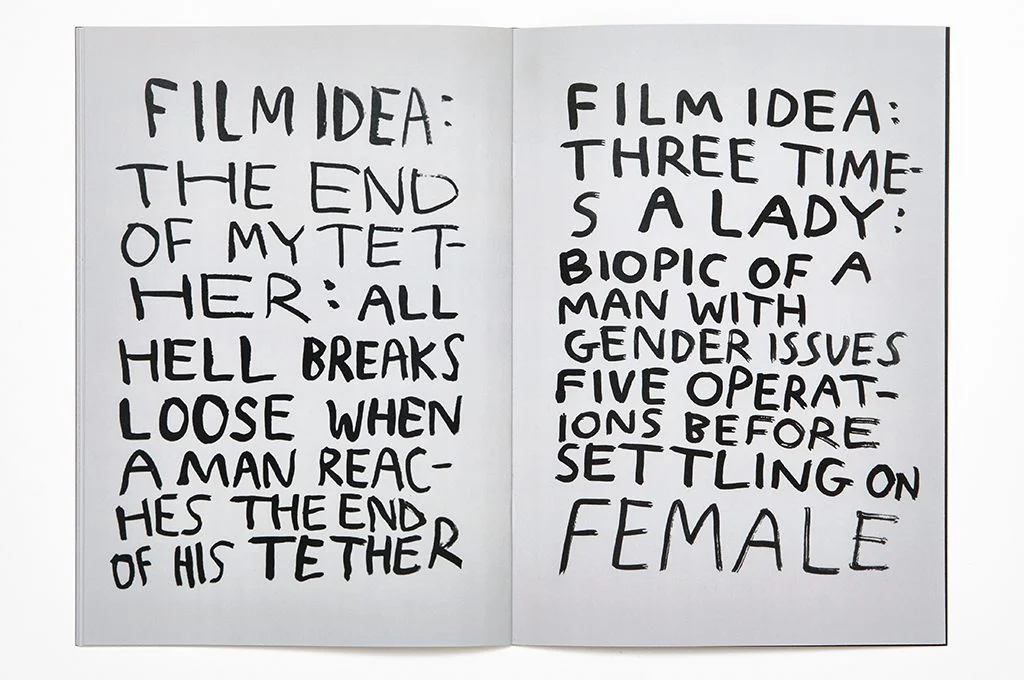 FILM IDEA:
THE END
OF MY TET-
HER: ALL
HELL BREAKS
LOOSE WHEN
A MAN REAC-
HES THE END
OF HIS TETHER
FILM IDEA:
THREE TIME-
S A LADY:
BIOPIC OF A
MAN WITH
GENDER ISSUES
FIVE OPERAT-
IONS BEFORE
SETTLING ON
FEMALE